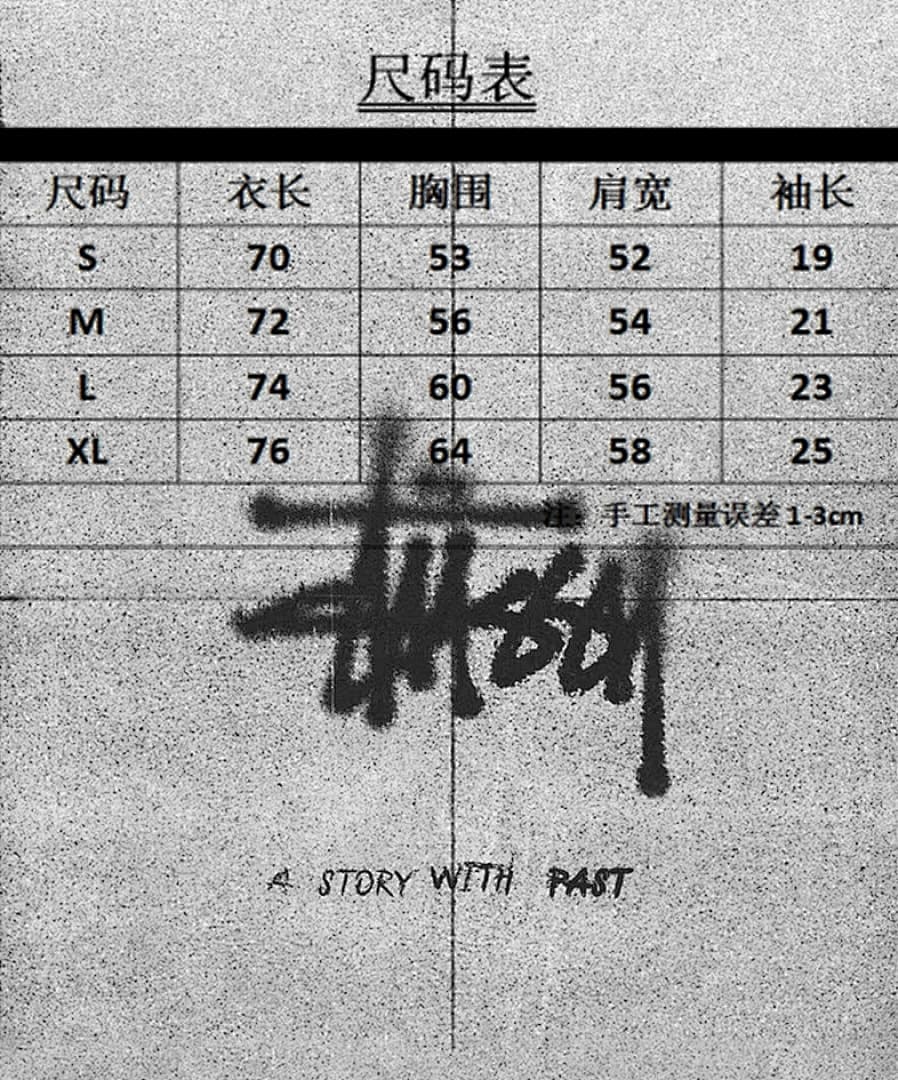 尺码表
尺码 衣长 胸围 肩宽 袖长
S 70 53 52 19
M 72 56 54 21
L 74 60 56 23
XL 76 64 58 25
注: 手工测量误差 1-3cm
Stussy
A STORY WITH PAST